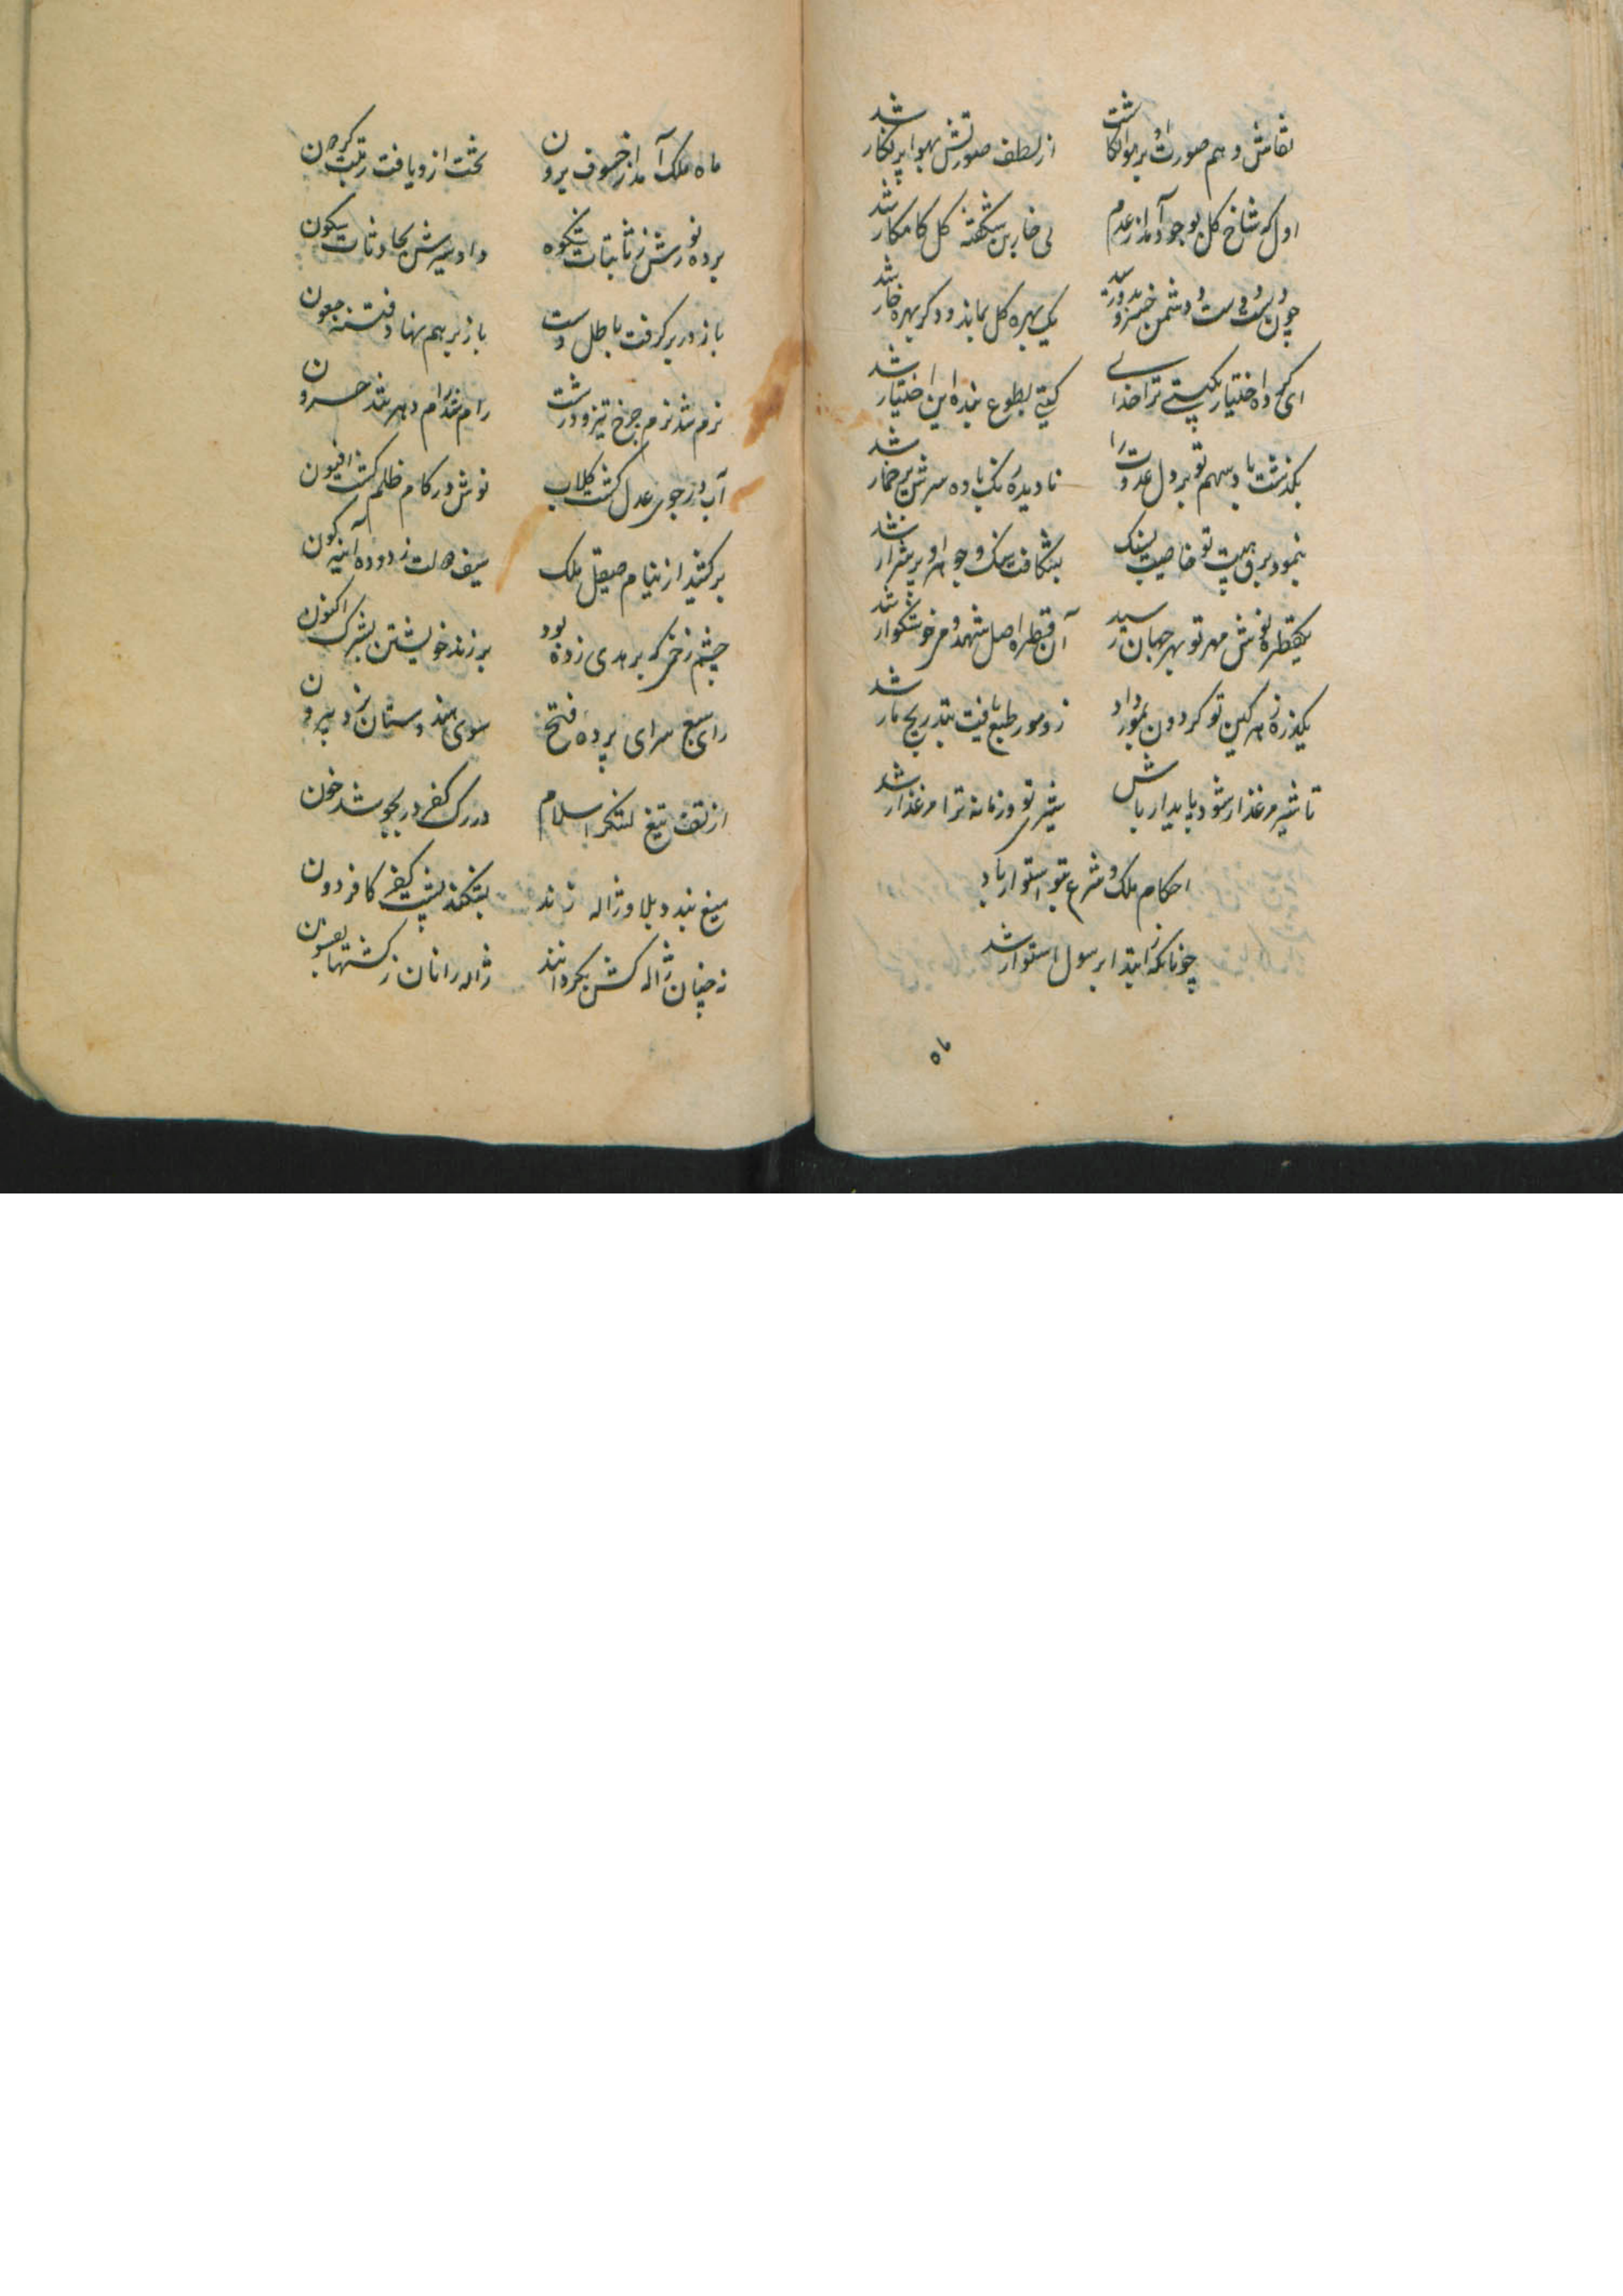 نقاش وهم صورت او بر هوا نگاشت از لطف صورتش بهوا پر نگار شد
اول که شاخ کل بوجود آمد از عدم بی خار بن شکفته کل کامکار شد
چون دوست و دشمن خسرو یک بهره کل بماند و دکر بهره خار شد
ای کرده اختیار بکیتی ترا خدای کیتی بطوع بنده این اختیار شد
بکذشت باد سهم تو بر دل عدوت را نادیده یک باده سرش پر خمار شد
بنمود برق هیبت تو خاصیت بسنک بشکافت سنک و جوهر او پر شرار شد
یکقطره نوش مهر تو بهر جهان رسید آن قطره اصل شهد و می خوشکوار شد
یکذره زهر کین تو کردون بمور داد زو مور طبع یافت بتدریج مار شد
تا شیر مرغذار شود پایدار باش شیری تو و زمانه ترا مرغذار شد
احکام ملک و شرع بتو استوار باد
چونانکه ز ابتدا برسول استوار شد
ماه ملک آمد از خسوف برون تخت ازو یافت رتبت کردون
برده نورش ز ثابتات شکوه داده سیرش بحادثات سکون
باز در بر کرفت باطل دست باز بر هم نهاد فتنه جفون
نرم شد نرم چرخ تیز و درشت رام شد رام دهر تند حرون
آب در جوی عدل کشت کلاب نوش در کام ظلم کشت افیون
برکشید از نیام صیقل ملک سیف دولت زدوده آینه کون
چشم زخمی که بر هدی زده بود برزند خویشتن بشرک اکنون
رای سبع سرای پرده فتح سوی هندوستان زد بیرون
از تف تیغ لشکر اسلام در رک کفر در بجوشد خون
میغ بندد بلا و ژاله زند بشکند پشت کفر کافر دون
نه چنان ژاله کش بکردانند ژاله رانان ز کشتها بفسون